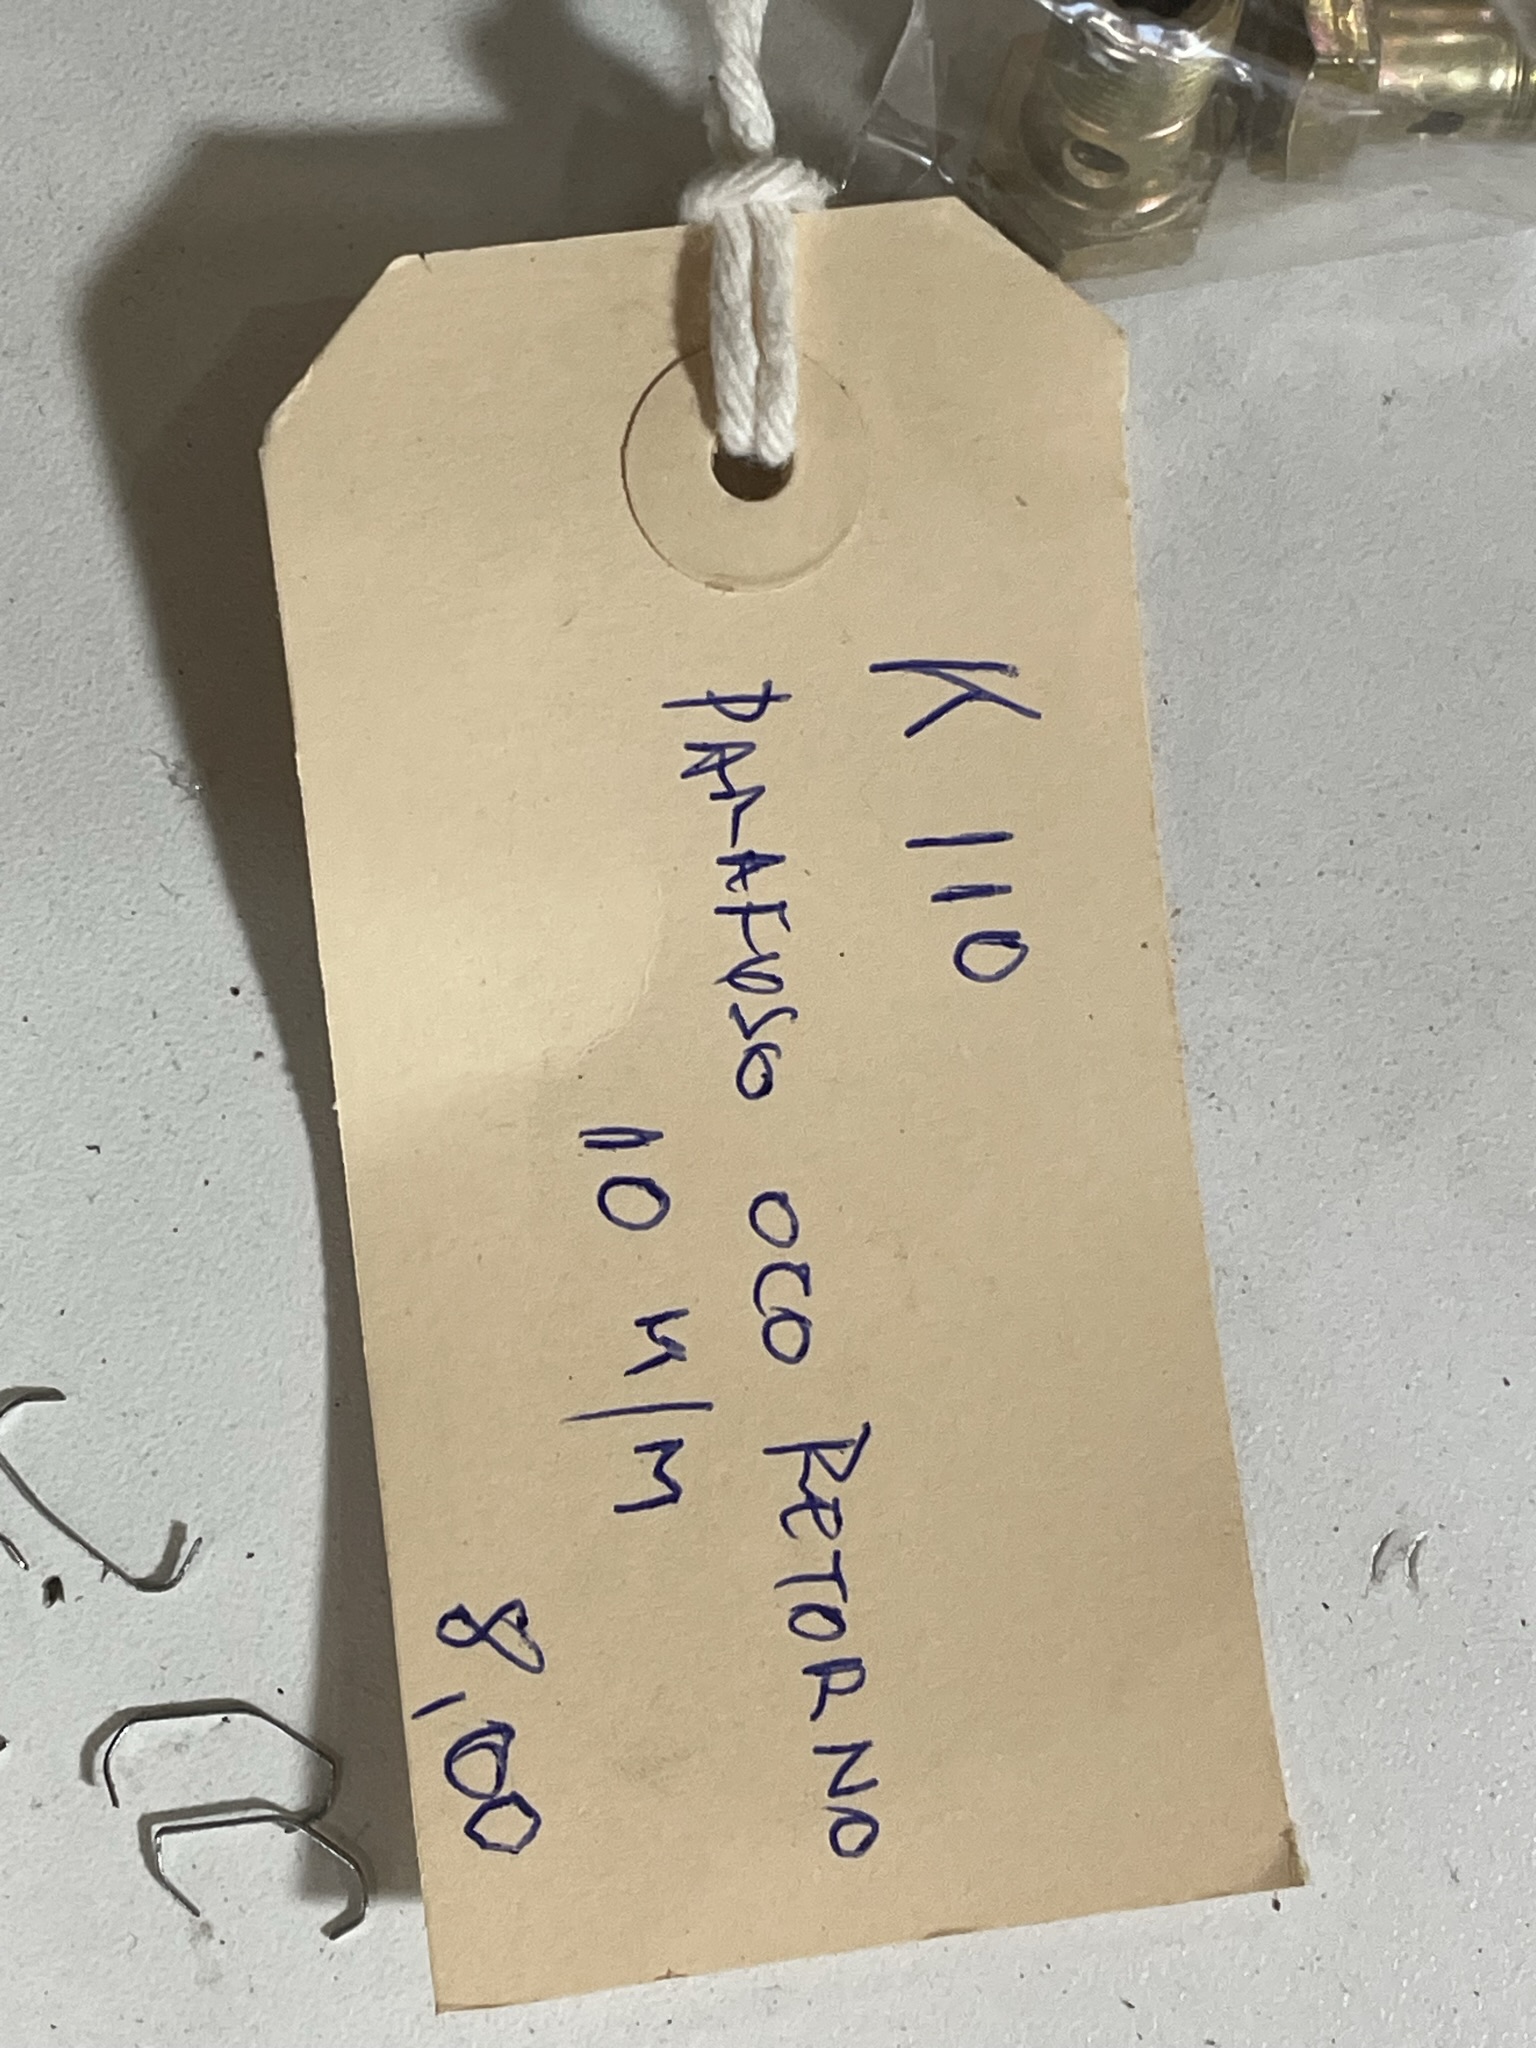 K 110
PARAFUSO OCO RETORNO
10 M/M
8,00